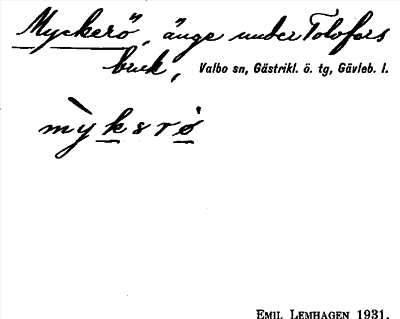 Myckerö, änge under Tolofors
bruk, Valbo sn, Gästrikl. ö. tg, Gävleb. l.
mỳksrö́
EMIL LEMHAGEN 1931.